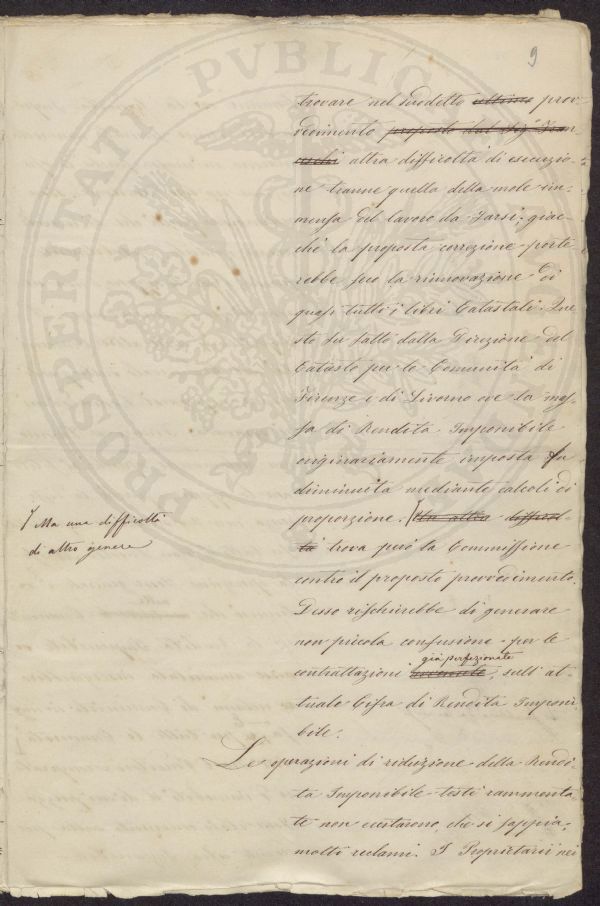 9
trovare nel suddetto ultimo prov-
vedimento proposto dal Sig.
altra difficoltà di esecuzio-
ne tranne quella della mole im-
mensa del lavoro da farsi; giac-
chè la proposta correzione porte-
rebbe seco la rinnovazione di
quasi tutti i libri Catastali. Que-
sto fu fatto dalla Direzione del
Catasto per le Comunità di
Firenze e di Livorno ove la mas-
sa di Rendita Imponibile
originariamente imposta fu
diminuita mediante calcoli di
proporzione. Un altra difficol-
tà trova però la Commissione
Ma una difficoltà
di altro genere
contro il proposto provvedimento.
Desso rischierebbe di generare
non piccola confusione per le
già perfezionate
contrattazioni avvenute, sull'at-
tuale Cifra di Rendita Imponi-
bile.
Le operazioni di riduzione della Rendi-
ta Imponibile testè rammenta-
te non eccitarono, che si sappia,
molti reclami. I Proprietarii nei
PROSPERITATI PVBLICAE